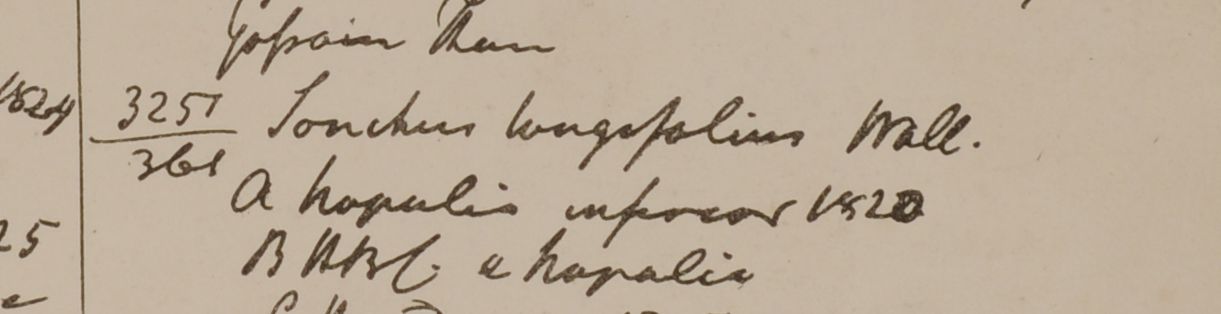 Gossain Than
1824 3251 Sonchus longifolius Wall.
361
A Napalia inferior 1820
25 B HBC. e Napalia